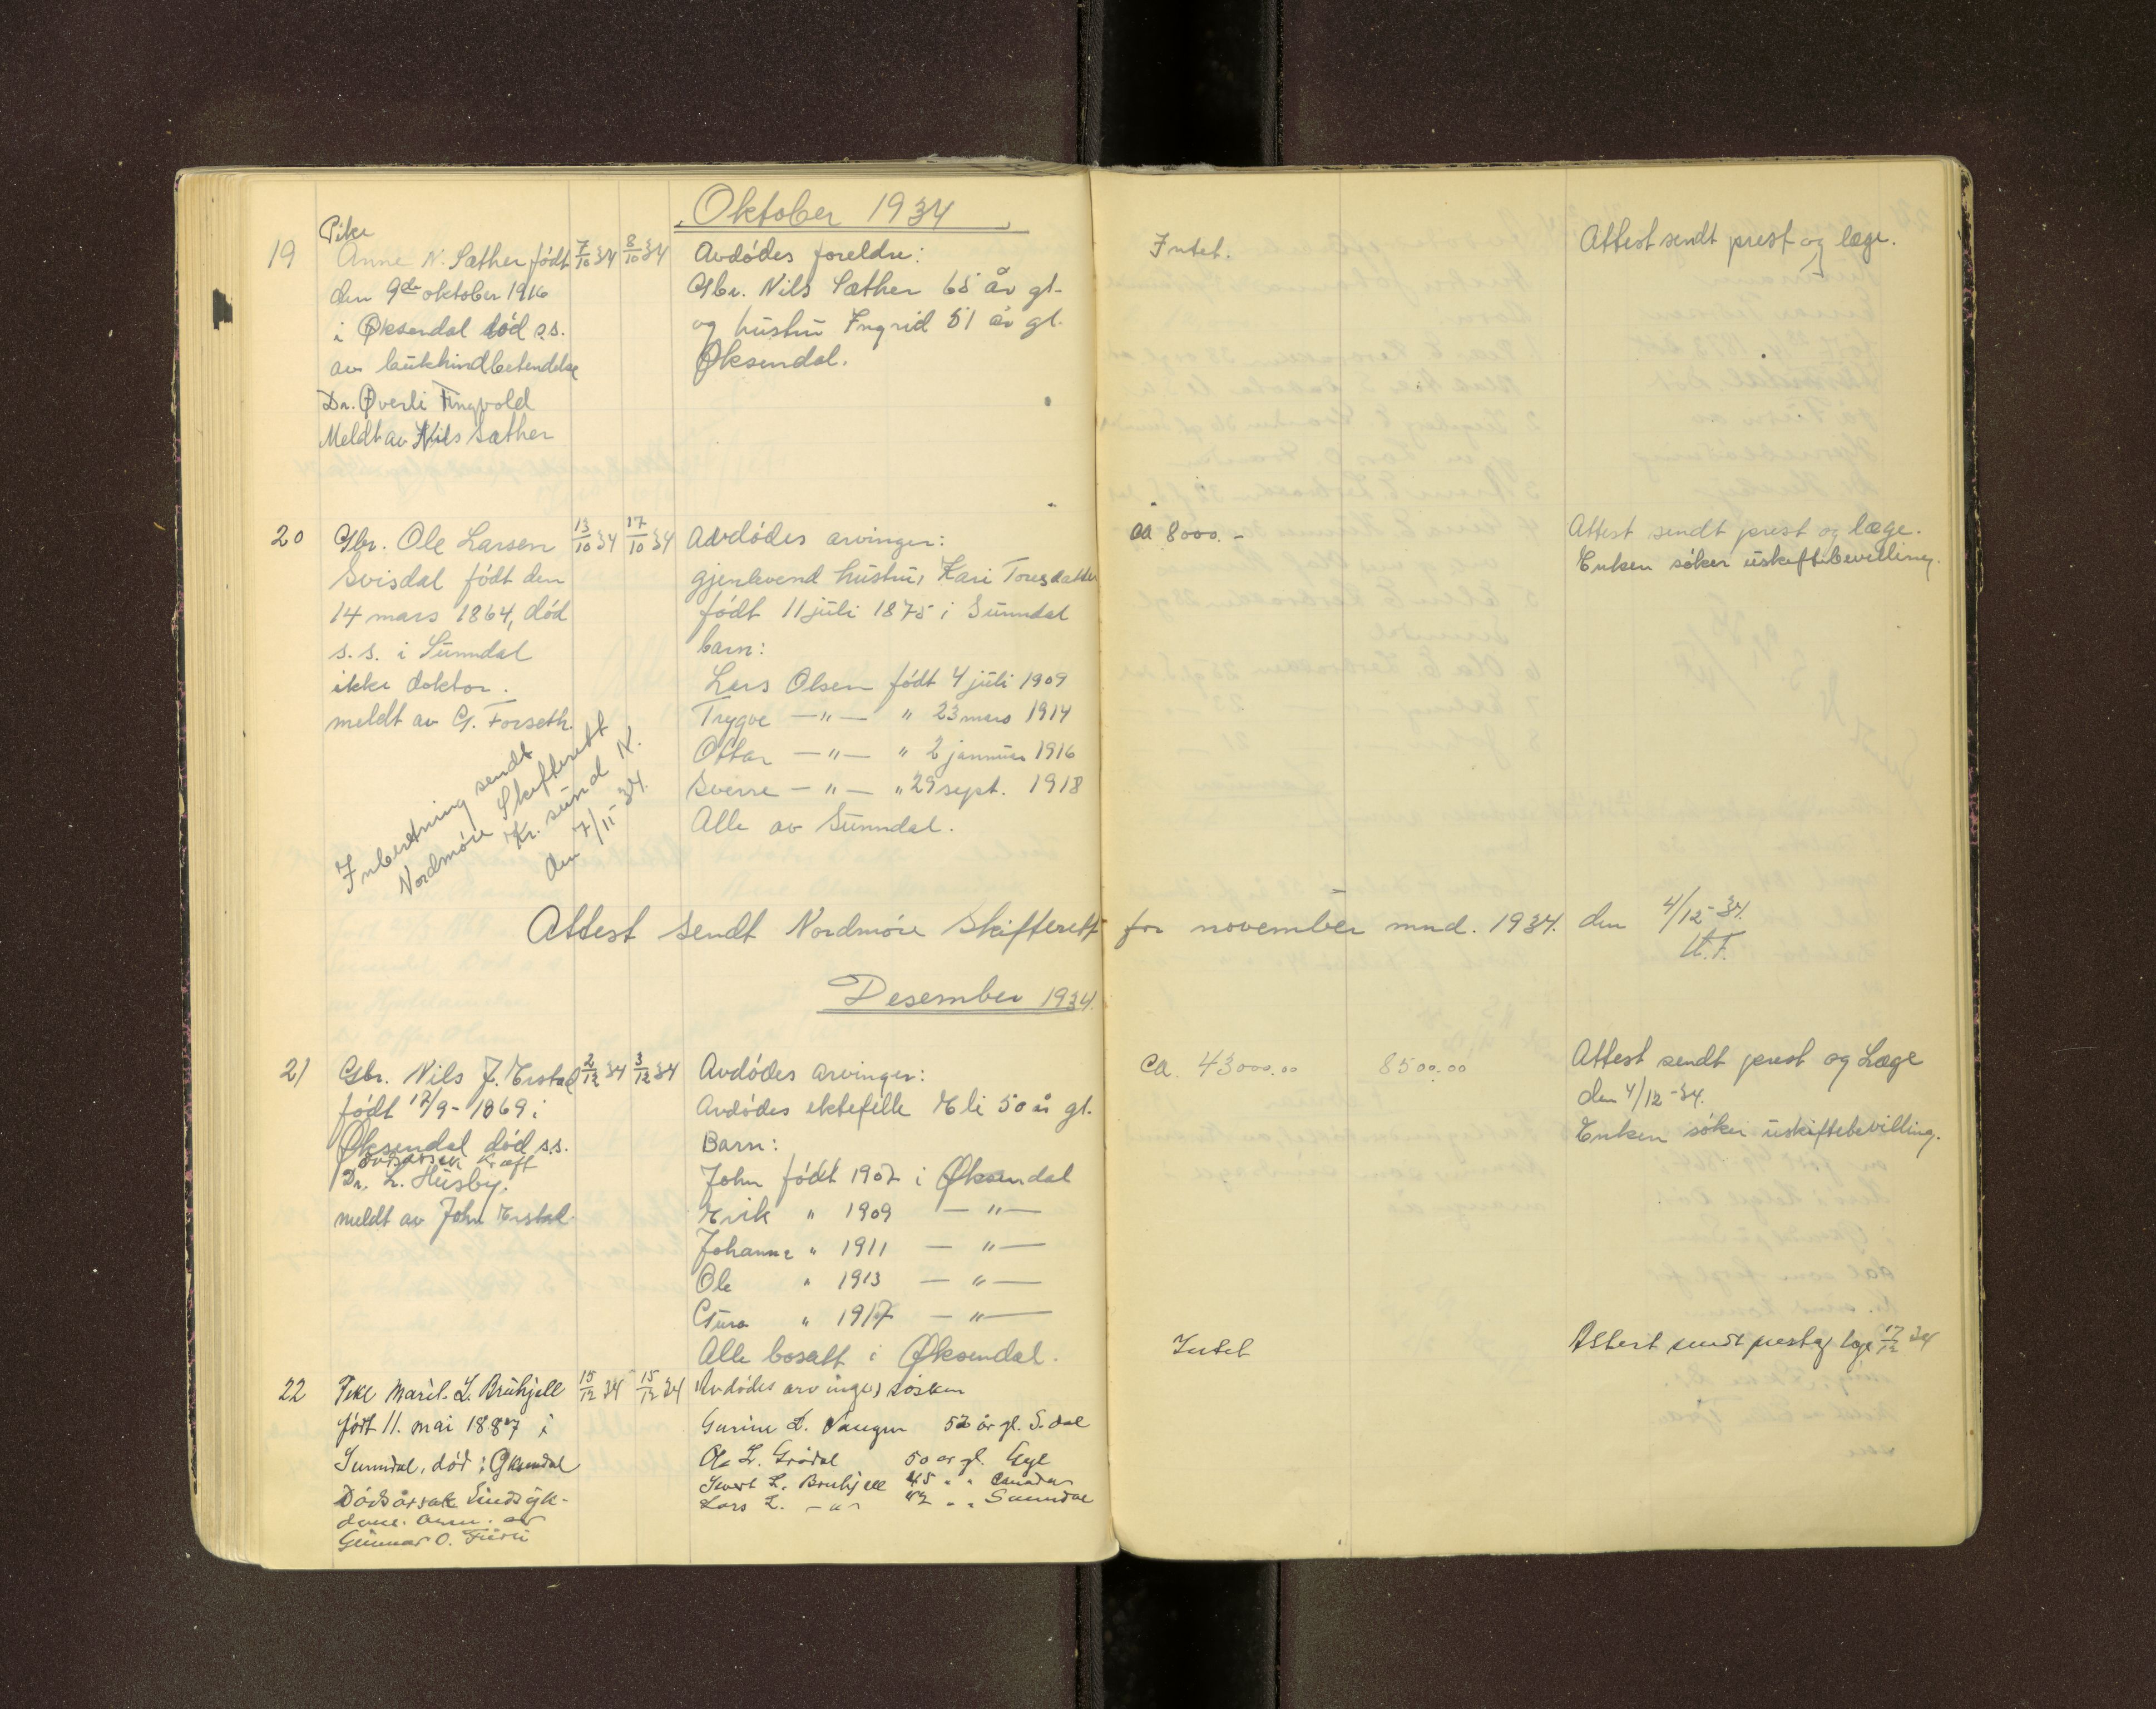 Oktober 1934
19
Pike
Anne N. Sæther født
den 9de oktober 1916
i Øksendal död s.s.
av bukhindbetendelse
Dr. Øverli Tingvold
Meldt av Nils Sæther
7/10 34
8/10 34
Avdödes foreldre:
Gbr. Nils Sæther 65 år gl.
og hustru Ingrid 51 år gl.
Øksendal.
Intet.
Attest sendt prest og læge.
20
Gbr. Ole Larsen
Svisdal födt den
14 mars 1864, död
s.s. i Sunndal
ikke doktor.
meldt av G. Forseth.
Inberetning sendt
Nordmöre Skifterett
Kr. sund N.
den 7/11-34.
13/10 34
17/10 34
Avdödes arvinger:
gjenlevend hustru, Kari Toresdatter
födt 11 juli 1875 i Sunndal
barn:
Lars Olsen födt 4 juli 1909
Trygve —"— " 23 mars 1914
Ottar —"— " 2 januar 1916
Sverre —"— " 29 sept. 1918
Alle av Sunndal.
ca 8000.-
Attest sendt prest og læge.
Enken söker uskiftebevilling.
Attest sendt Nordmöre Skifterett for november mnd. 1934. den 4/12-34.
Desember 1934.
21
Gbr. Nils J. Erstad
födt 17/9-1869 i
Øksendal död s.s.
Dödsårsak Kræft
Dr. L. Husby.
meldt av John Erstad.
2/12 34
3/12 34
Avdödes arvinger:
Avdödes ektefelle Eli 50 år gl.
Barn:
John födt 1907 i Øksendal
Erik " 1909 —"—
Johanne " 1911 —"—
Ole " 1913 —"—
Guro " 1917 —"—
Alle bosatt i Øksendal.
ca. 43000.00
8500.00
Attest sendt prest og Læge
den 4/12-34.
Enken söker uskiftebevilling.
22
Pike Marit L. Bruhjell
født 11. mai 1887 i
Sunndal, död i Øksendal
Dödsårsak Sindsyk-
dom. Anm. av
Gunnar O. Furu
15/12 34
15/12 34
Avdödes arvinger, søsken
Gurine L. 52 år gl. S.dal
Ole L. Grødal 50 år gl.
Sivert L. Bruhjell 45 " " Canada
Lars L. —"— 42 " " Sunndal
Intet
Attest sendt prest og læge 17/12 34